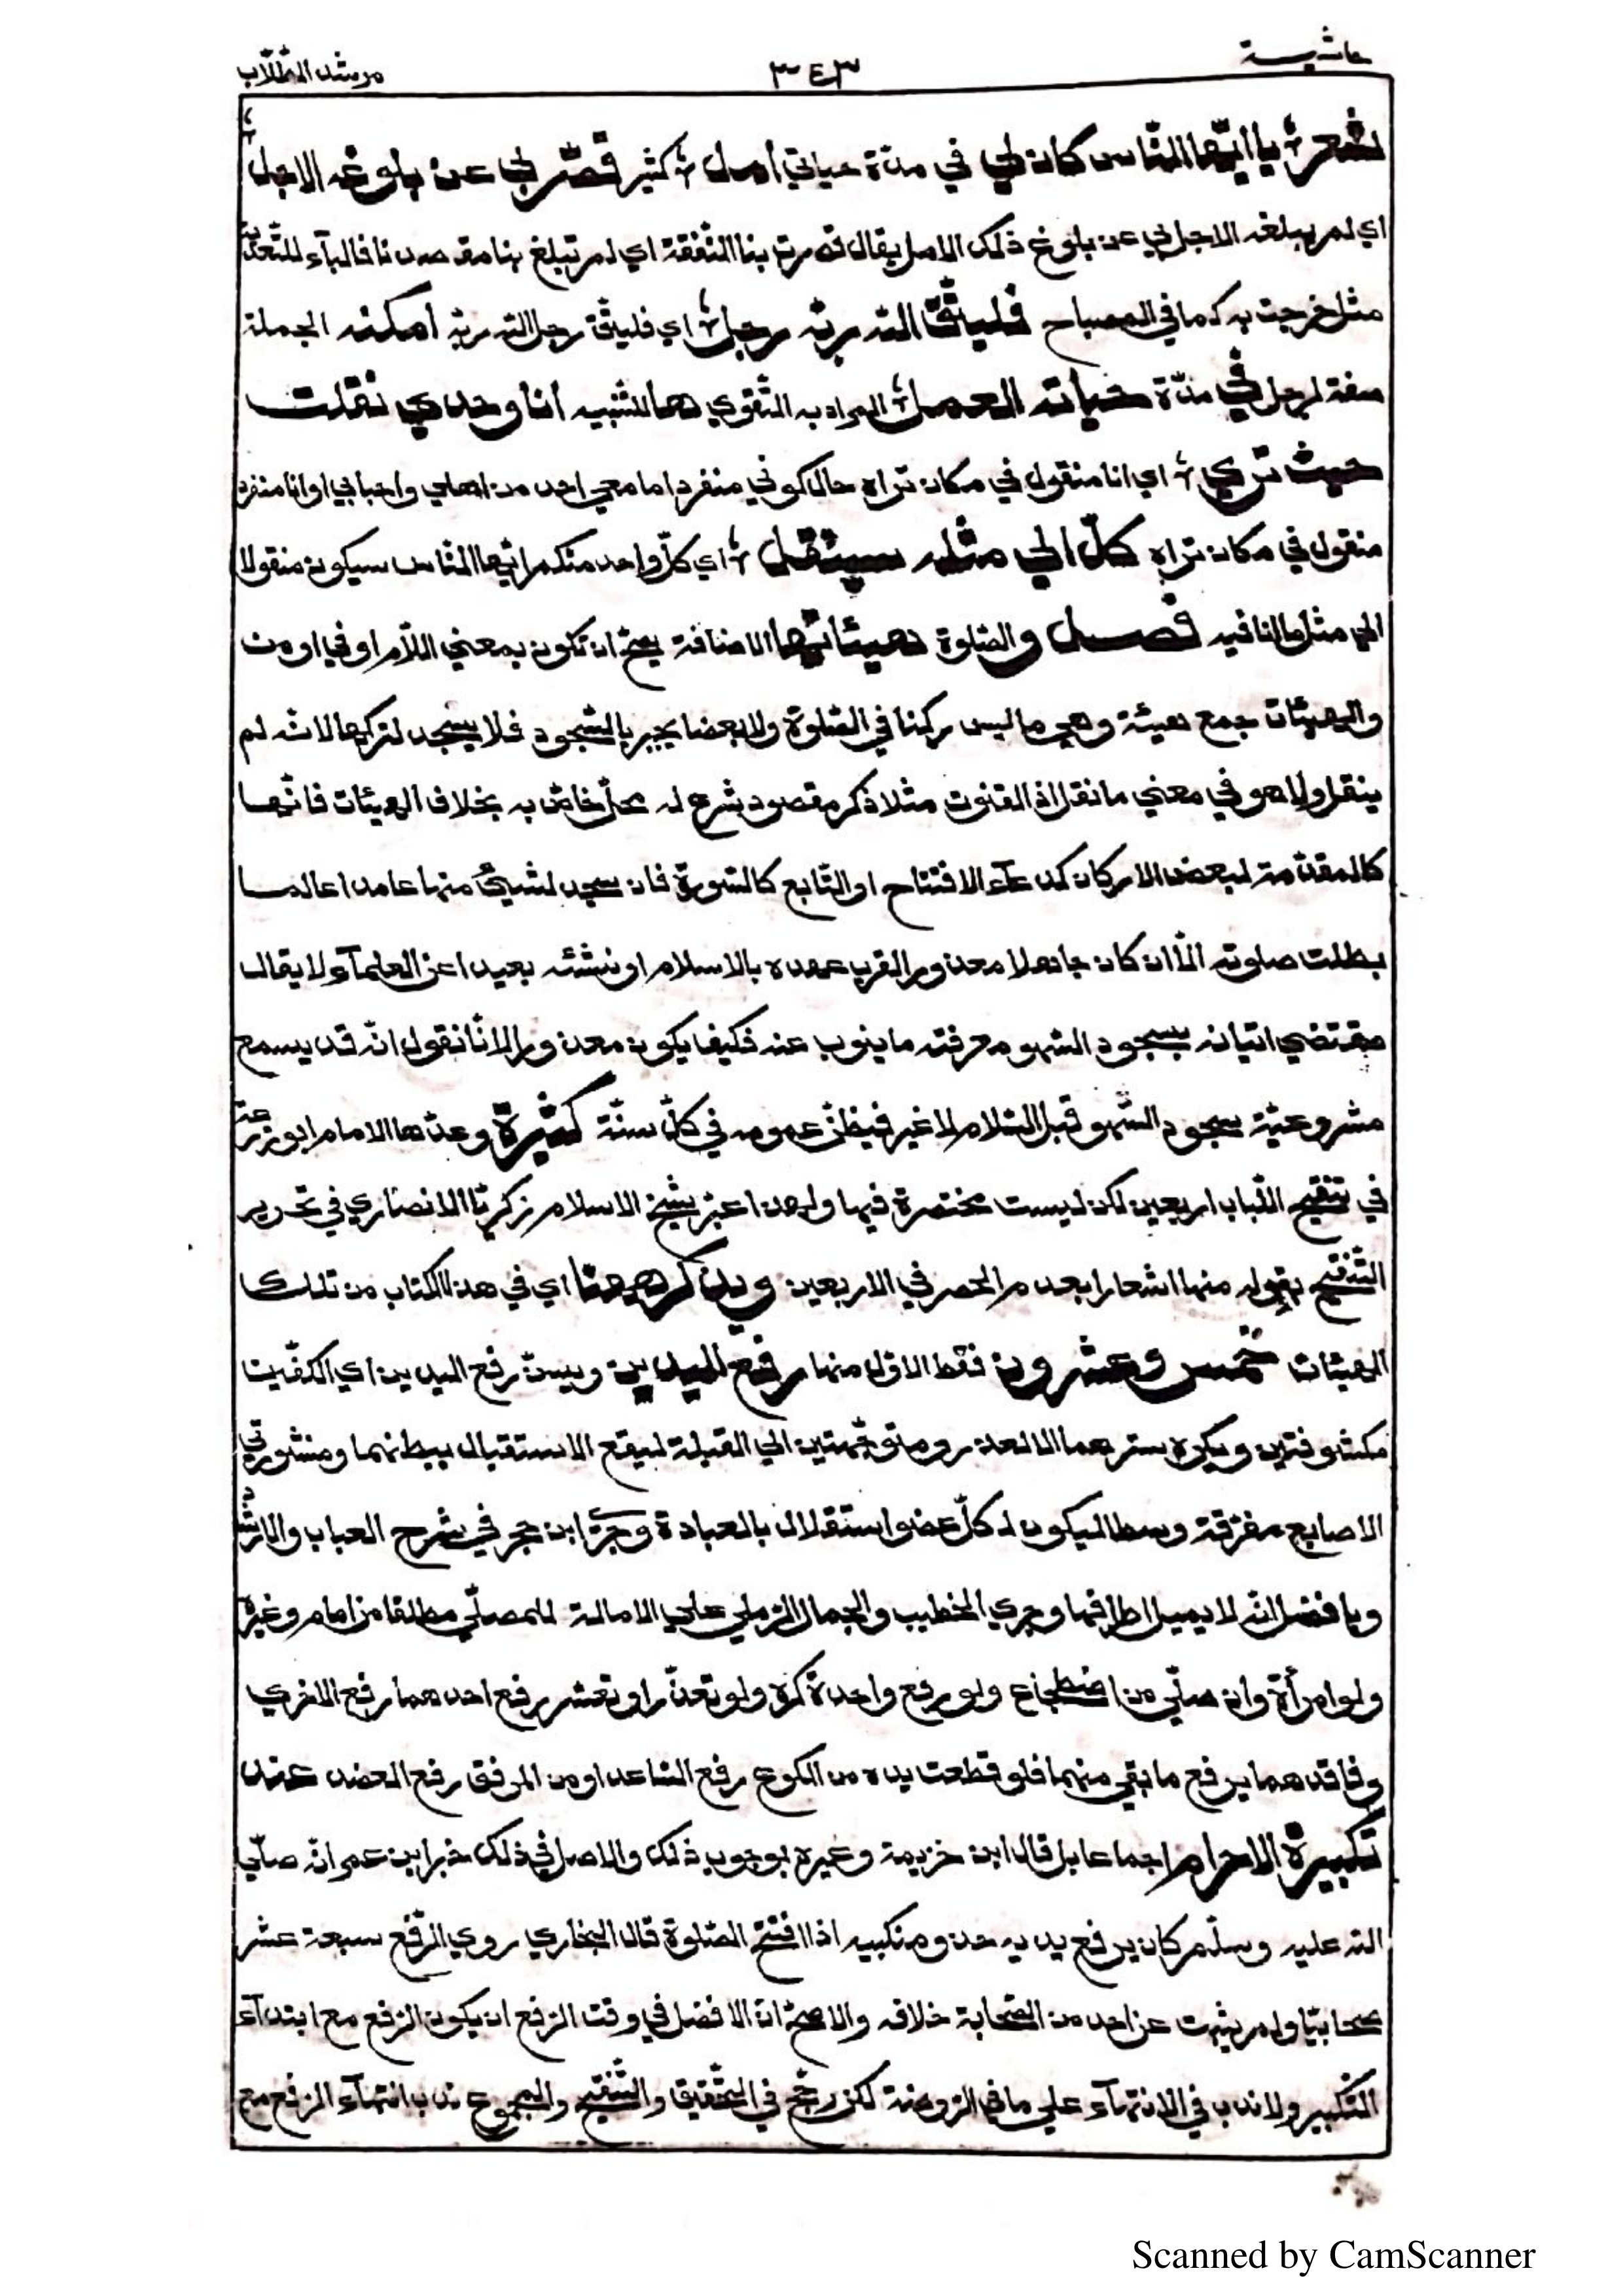 حاشية ٣٤٣ مرشد الطّلّاب
شعر ؛ يا أيّها النّاس كان لي في مدّة حياتي أمل ؛ كثير قصّر لي عن بلوغه الاجل ؛
اي لم يبلغه الاجل لي عن بلوغ ذلك الامل يقال قصرت بنا النّفقة اي لم تبلغ بنا مقصدنا فالبآء للتّعدية
مثل خرجت به كما في المصباح فليتّق الله ربّه رجل ؛ اي فليتّق رجل الله ربّه أمكنه الجملة
صفة لرجل في مدّة حياته العمل ؛ المراد به التّقوي ها للتّنبيه أنا وحدي نقلت
حيث تري ؛ اي انا منقول في مكان تراه حال كوني منفردا ما معي احد من اهلي واحبابي او انا منفرد
منقول في مكان تراه كلّ الي مثله سينتقل ؛ اي كلّ واحد منكم ايّها النّاس سيكون منقولا
الي مثل ما انا فيه فصل والصّلوة هيئاتها الاضافة يصحّ ان تكون بمعني اللّام او في او من
والهيئات جمع هيئة وهي ما ليس ركنا في الصّلوة ولا بعضا يجبر بالسّجود فلا يسجد لتركها لانّه لم
ينقل ولا هو في معني ما نقل اذ القنوت مثلا ذكر مقصود شرع له محلّ خاصّ به بخلاف الهيئات فانّها
كالمقدّمة لبعض الاركان كدعآء الافتتاح او التّابع كالسّورة فان سجد لشيئ منها عامدا عالما
بطلت صلوته الّا ان كان جاهلا معذورا لقرب عهده بالاسلام او نشئه بعيدا عن العلمآء لا يقال
مقتضي اتيانه بسجود السّهو معرفته ما ينوب عنه فكيف يكون معذورا لانّا نقول انّه قد يسمع
مشروعيّة سجود السّهو قبل السّلام لا غير فيظنّ عمومه في كلّ سنّة كثيرة وعدّها الامام ابو زرعة
في تنقيح اللّباب اربعين لكن ليست مختصرة فيها ولهذا عبّر شيخ الاسلام زكريّا الانصاري في تحرير
التّنقيح بقوله منها اشعارا بعدم الحصر في الاربعين ويذكر ههنا اي في هذا الكتاب من تلك
الهيئات خمس وعشرون فقط الاوّل منها رفع اليدين ويسنّ رفع اليدين اي الكفّين
مكشوفتين ويكره سترهما الّا لعذر ومتوجّهتين الي القبلة ليقع الاستقبال ببطنهما ومنشورتي
الاصابع مفرّقة وسطا ليكون لـ كلّ عضو استقلال بالعبادة وجري ابن حجر في شرح العباب والارشاد
وبافضل انّه لا يميل اطرافها وجري الخطيب والجمال الرّملي علي الامالة للمصلّي مطلقا من امام وغيره
ولو امرأة وان صلّي من اضطجاع ولو رفع واحدة كره ولو تعذّر او تعسّر رفع احدهما رفع الاخري
وفاقدهما يرفع ما بقي منهما فلو قطعت يده من الكوع رفع السّاعد او من المرفق رفع العضد عند
تكبيرة الاحرام اجماعا بل قال ابن خزيمة وغيره بوجوب ذلك والاصل في ذلك خبر ابن عمر انّه صلّي
الله عليه وسلّم كان يرفع يديه حذو منكبيه اذا افتتح الصّلوة قال البخاري روي الرّفع سبعة عشر
صحابيّا ولم يثبت عن احد من الصّحابة خلافه والاصحّ انّ الافضل في وقت الرّفع ان يكون الرّفع مع ابتدآء
التّكبير ولا ندب في الانتهآء علي ما في الرّوضة لكن رجّح في التّحقيق والتّنقيح والمجموع ندب انتهآء الرّفع مع
Scanned by CamScanner